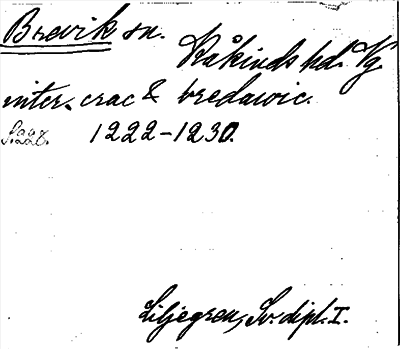 Brevik sn.
Kåkinds hd. Vg.
inter crac & bredawic.
S. 228. 1222-1230.
Liljegren, Sv. dipl. I.